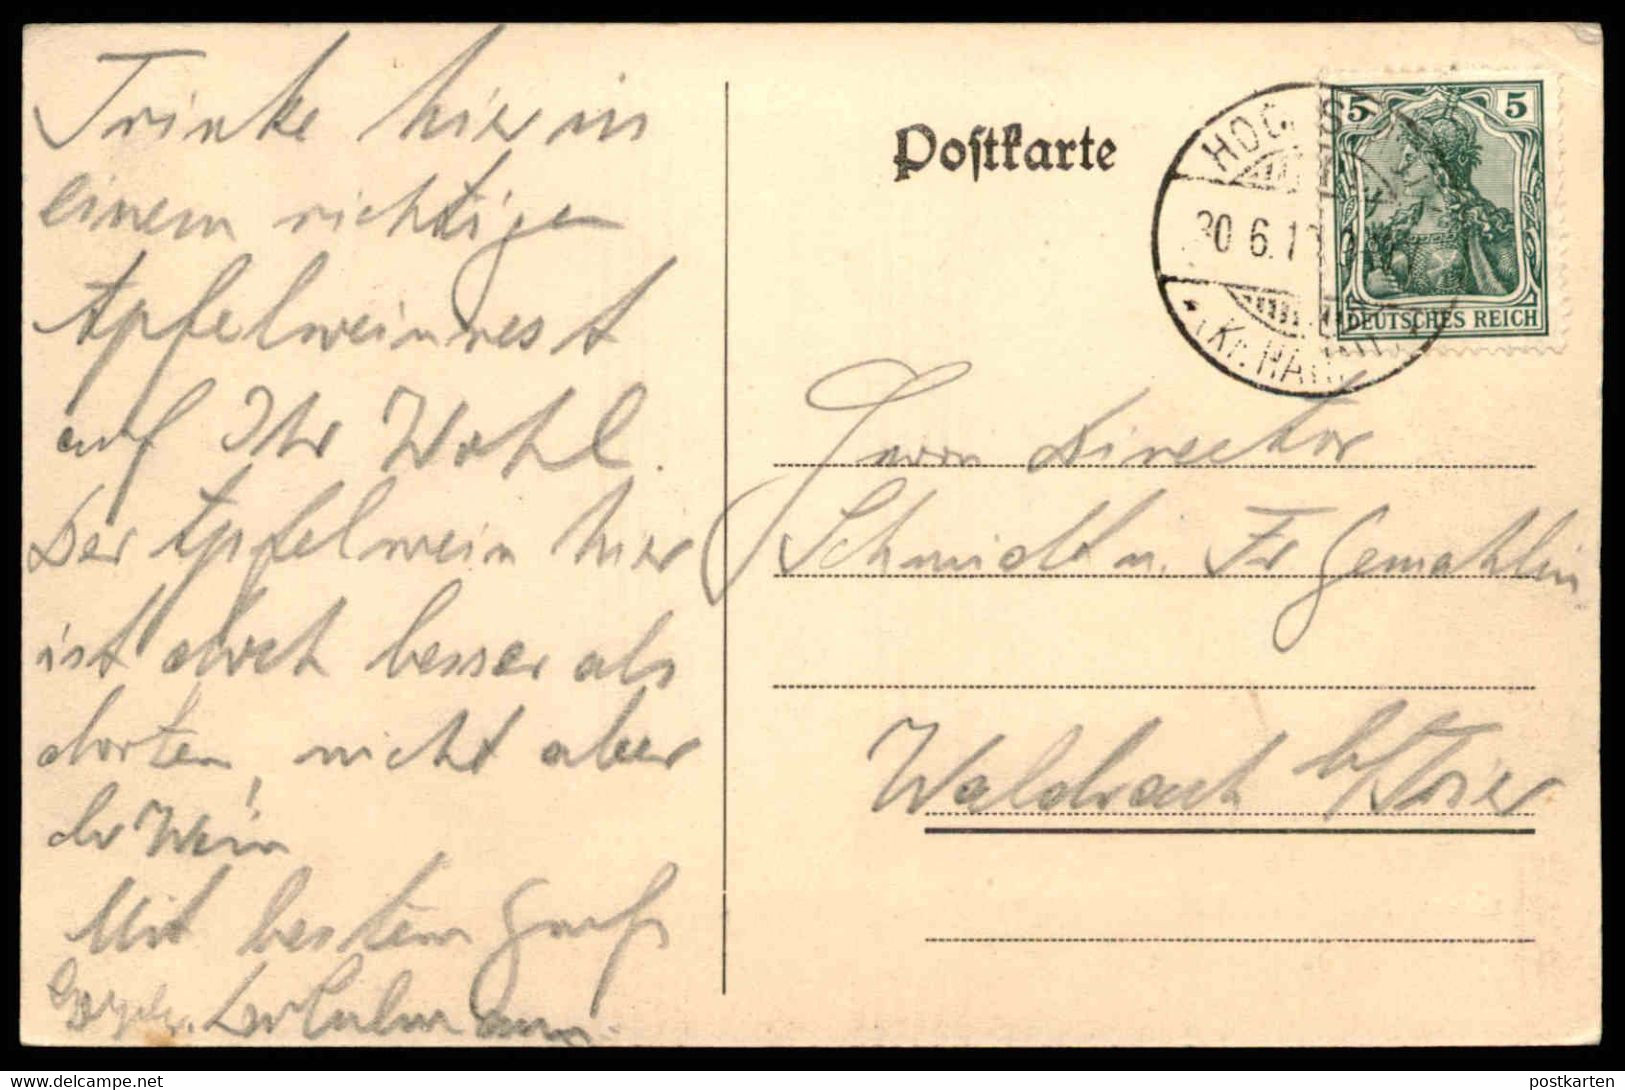 Trinke hier in
einem richtigen
Apfelweinnest
auf Ihr Wohl.
Der Apfelwein hier
ist doch besser als
dorten, nicht aber
dr Wein
Mit bestem Gruß
Postkarte
5 5
DEUTSCHES REICH
30.6.1
(Kr. HANAU)
Herrn Director
Schmidt u. Fr Gemahlin
Waldrach b/Trier
postkarten